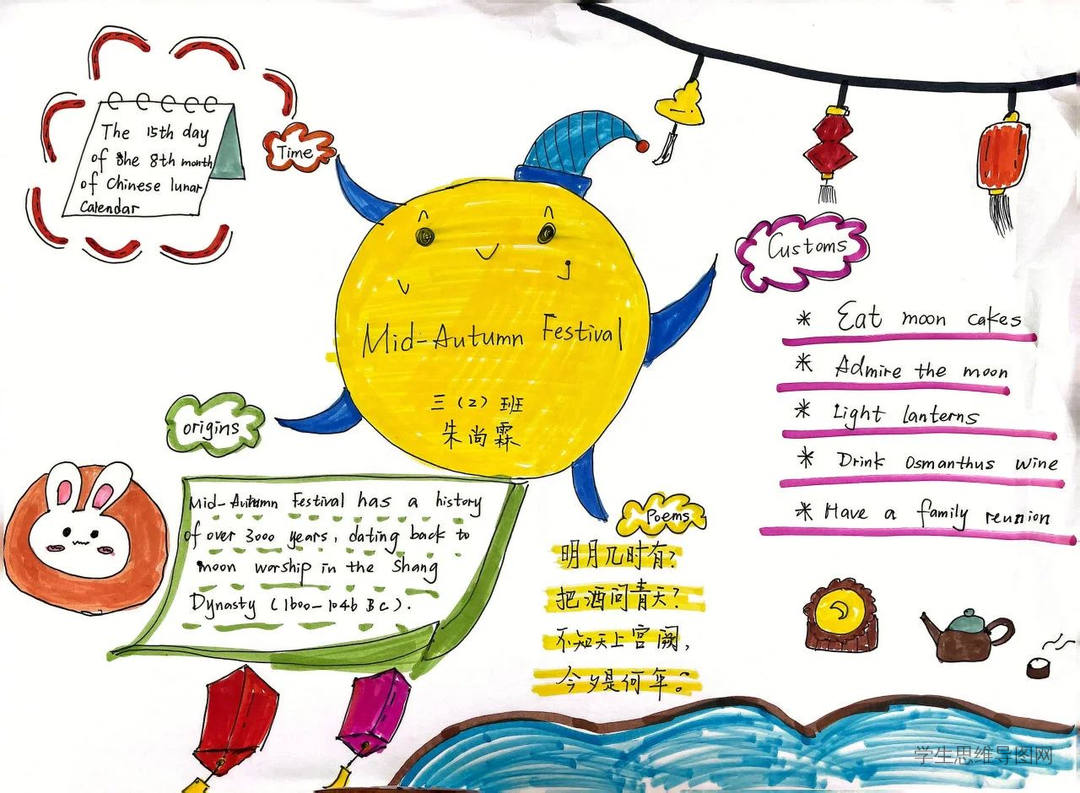 Time
The 15th day
of the 8th month
of Chinese lunar
Calendar
Mid-Autumn Festival
三（2）班
朱尚霖
Customs
* Eat moon cakes
* Admire the moon
* Light lanterns
* Drink Osmanthus wine
* Have a family reunion
origins
Mid-Autumn Festival has a history
of over 3000 years, dating back to
moon worship in the Shang
Dynasty (1600-1046 Bc).
Poems
明月几时有?
把酒问青天?
不知天上宫阙,
今夕是何年?
学生思维导图网